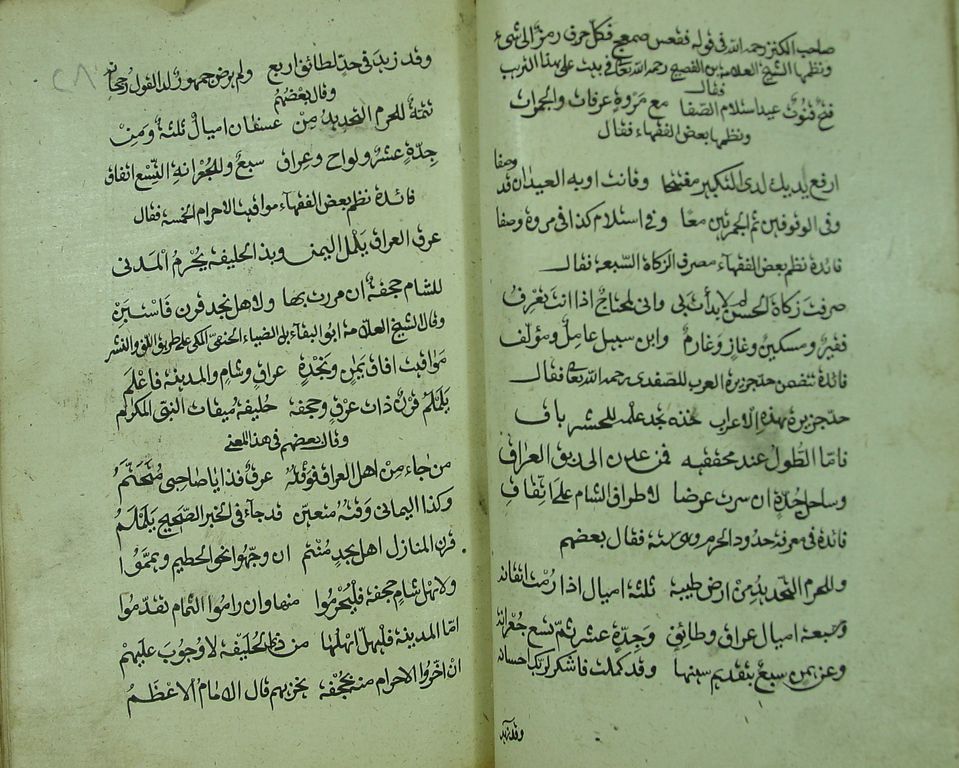 صاحب الكنز رحمه الله في قوله فقعس صمعج فكل حرف رمز الى شئ
ونظمها الشيخ العلامة بن الفصيح رحمه الله تعا في بيت على هذا الترتيب
فقال
فتح قنوت عيد استلام الصفا مع مروة عرفات والجمرات
ونظمها بعض الفقهاء فقال
ارفع يديك لدى التكبير مفتتحا وقانتا وبه العيدان قد وصفا
وفى الوقوفين ثم الجمرتين معا وفى استلام كذا في مروة وصفا
فائدة نظم بعض الفقهاء مصرف الزكاة السبعه فقال
صرفت زكاة الحسن لم لا بدأت بي وانى لمحتاج اذا انت تعرف
فقير ومسكين وغاز وغارم وابن سبيل عامل ومؤلف
فائدة تتضمن حد جزيرة العرب للصفدى رحمه الله تعا فقال
حد جزيرة بهذه الاعراب خذه تجد علمه للحشر باق
فاما الطول عند محققيه فمن عدن الى ريق العراق
وساحل جدة ان سرت عرضا لاطراف الشام على اتفاق
فائدة في معرفة حدود الحرم فقال بعضهم
وللحرم التحديد من ارض طيبة ثلثة اميال اذا رمت اتقانه
وسبعة اميال عراق وطائف وجدة عشر ثم تسع جعرانه
وعن يمن سبع بتقديم سينها وقد كملت فاشكر لربك احسانه
وقد زيد
وقد زيد في حد لطائف اربع ولم يرض جمهور لذا القول رجحانه
وقال بعضهم
تتمة للحرم التحديد من عسفان اميال ثلثة ومن
جدة عشر ولواح وعراق سبع وللجعرانة التسع اتفاق
فائدة نظم بعض الفقهاء مواقيت الاحرام الخمسة فقال
عرق العراق يلملم اليمن وبذا الحليفة يحرم المدنى
للشام جحفة ان مررت بها ولاهل نجد قرن فاستبن
وقال الشيخ العلامة ابو البقاء بن الضياء الحنفي المكي على طريق اللف والنشر
مواقيت افاق يمان ونجدة عراق وشام والمدينة فاعلم
يلملم قرن ذات عرق وجحفة حليفة ميقات النبى المكرم
وقال بعضهم في هذا المعنى
من جاء من اهل العراق فوقته عرق فذا يا صاحبى متحتم
وكذا اليمانى وقته متعين قد جاء فى الخبر الصحيح يلملم
قرن المنازل اهل نجد منتم ان وجهوا نحو الحطيم ويمموا
ولاهل شام جحفة فليحرموا منها وان راموا التمام تقدموا
اما المدينة فليهل اهلها من ذى الحليفة لا وجوب عليهم
ان اخروا الاحرام منه بجحفة يجزيهم قال الامام الاعظم